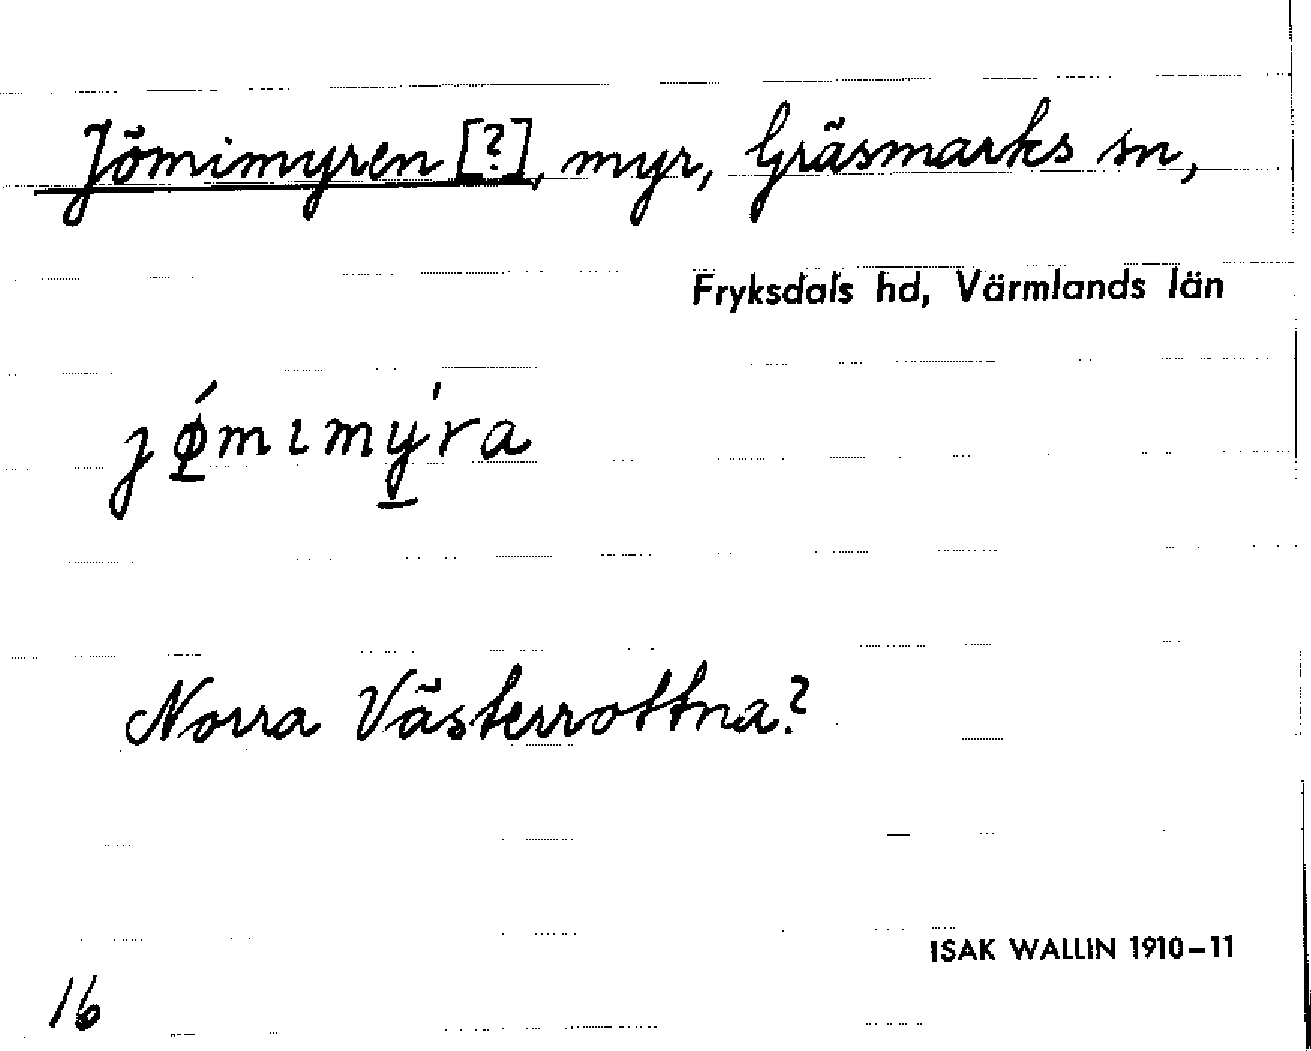 Jömimyren [?], myr, Gräsmarks sn,
Fryksdals hd, Värmlands län
jǿ̲mɩmy̲̍ra
Norra Västerrottna?
ISAK WALLIN 1910–11
16